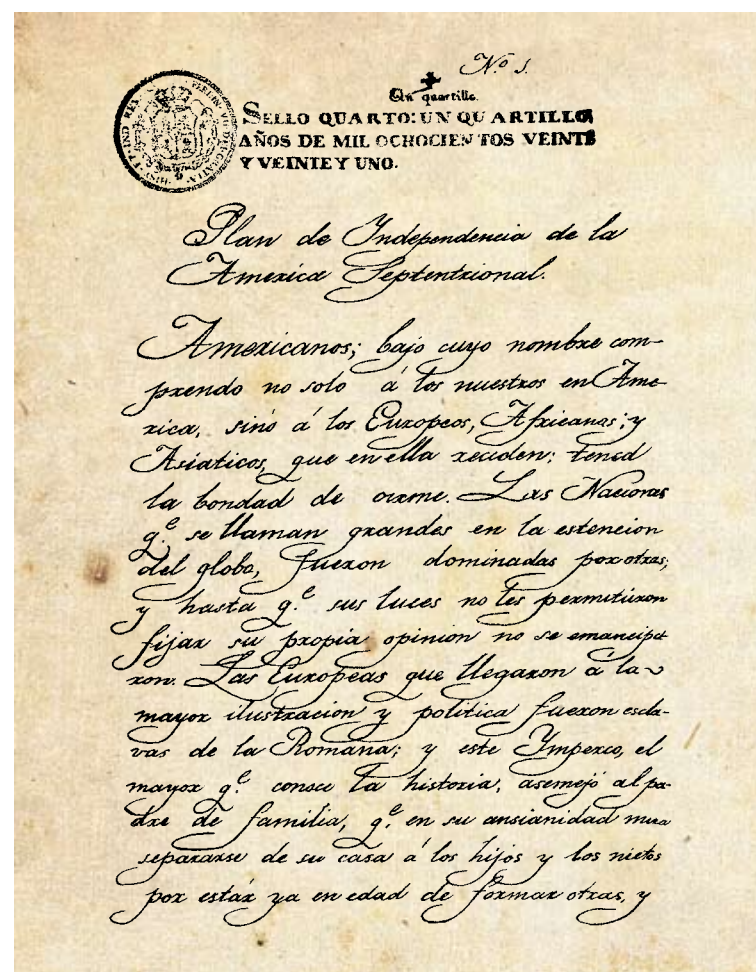 Nº 1.
Un quartillo.
SELLO QUARTO: UN QUARTILLO
AÑOS DE MIL OCHOCIENTOS VEINTE
Y VEINTE Y UNO.
Plan de Independencia de la
America Septentrional.
Americanos; bajo cuyo nombre com-
prendo no solo á los nuestros en Ame-
rica, sinó á los Europeos, Africanos; y
Asiaticos, que en ella reciden: tened
la bondad de oirme. Las Naciones
q.e se llaman grandes en la estencion
del globo, fueron dominadas por otras;
y hasta q.e sus luces no les permitiéron
fijar su propia opinion no se emancipa
ron. Las Europeas que llegaron á la
mayor ilustracion y politica fueron escla-
vas de la Romana; y este Imperio, el
mayor q.e consce la historia, asemejó al pa-
dre de familia, q.e en su ansianidad mira
separarse de su casa á los hijos y los nietos
por estár ya en edad de formar otras, y